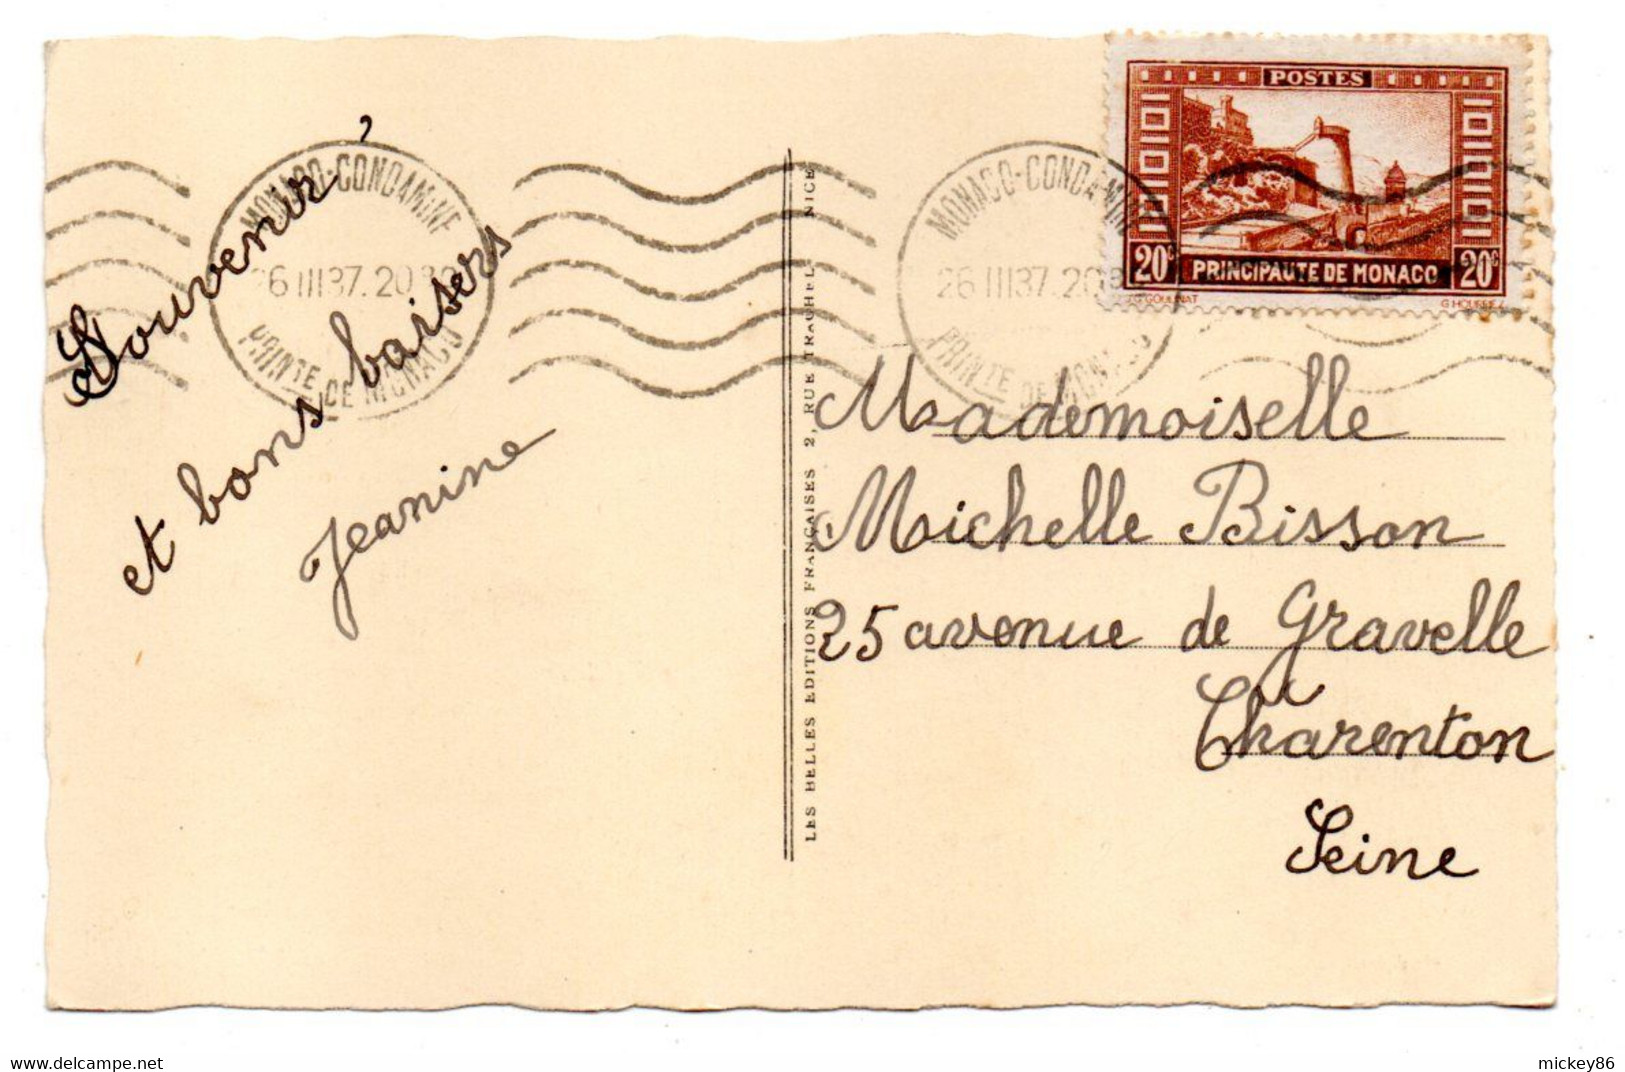 Souvenir
et bons baisers
Jeanine
MONACO-CONDAMINE
26 III 37. 20
PRINTE DE MONACO
LES BELLES EDITIONS FRANÇAISES 2, RUE TRACHEL, NICE
MONACO-CONDAMINE
26 III 37. 20
PRINTE DE MONACO
POSTES
20c PRINCIPAUTE DE MONACO 20c
G GOUINAT
Mademoiselle
Michelle Bisson
25 avenue de Gravelle
Charenton
Seine
mickey86